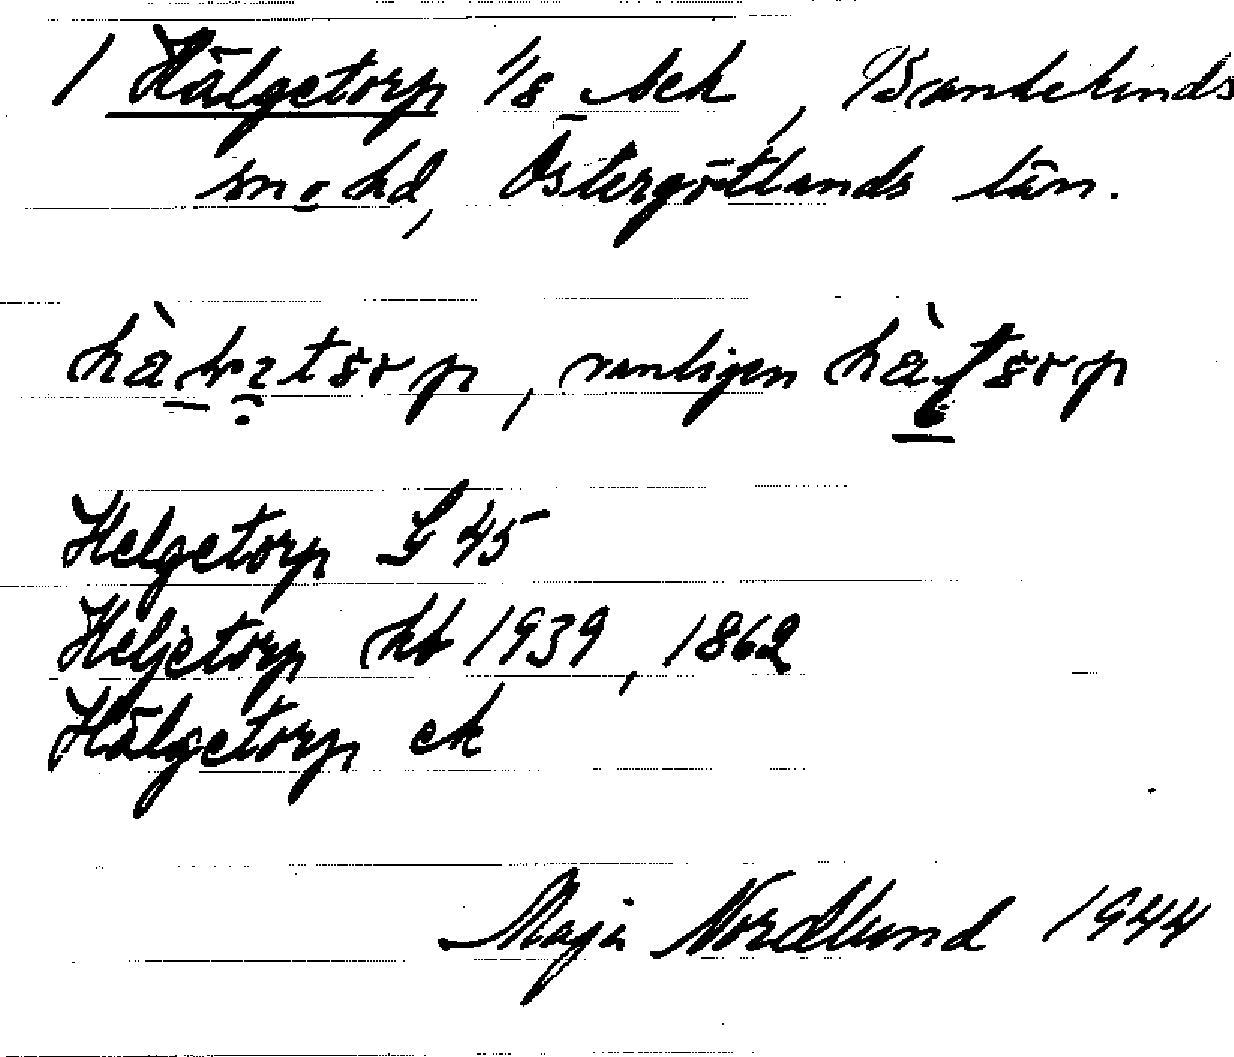 1 Hälgetorp 1/8 sek, Bankekinds
sn o hd, Östergötlands län.
vanligen
Helgetorp G 45
Heljetorp kb 1939, 1862
Hälgetorp ek
Maja Nordlund 1944